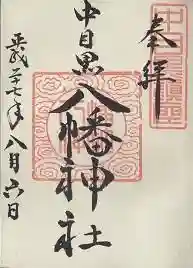 奉拝
中目黒
八幡神社
平成二十七年八月六日